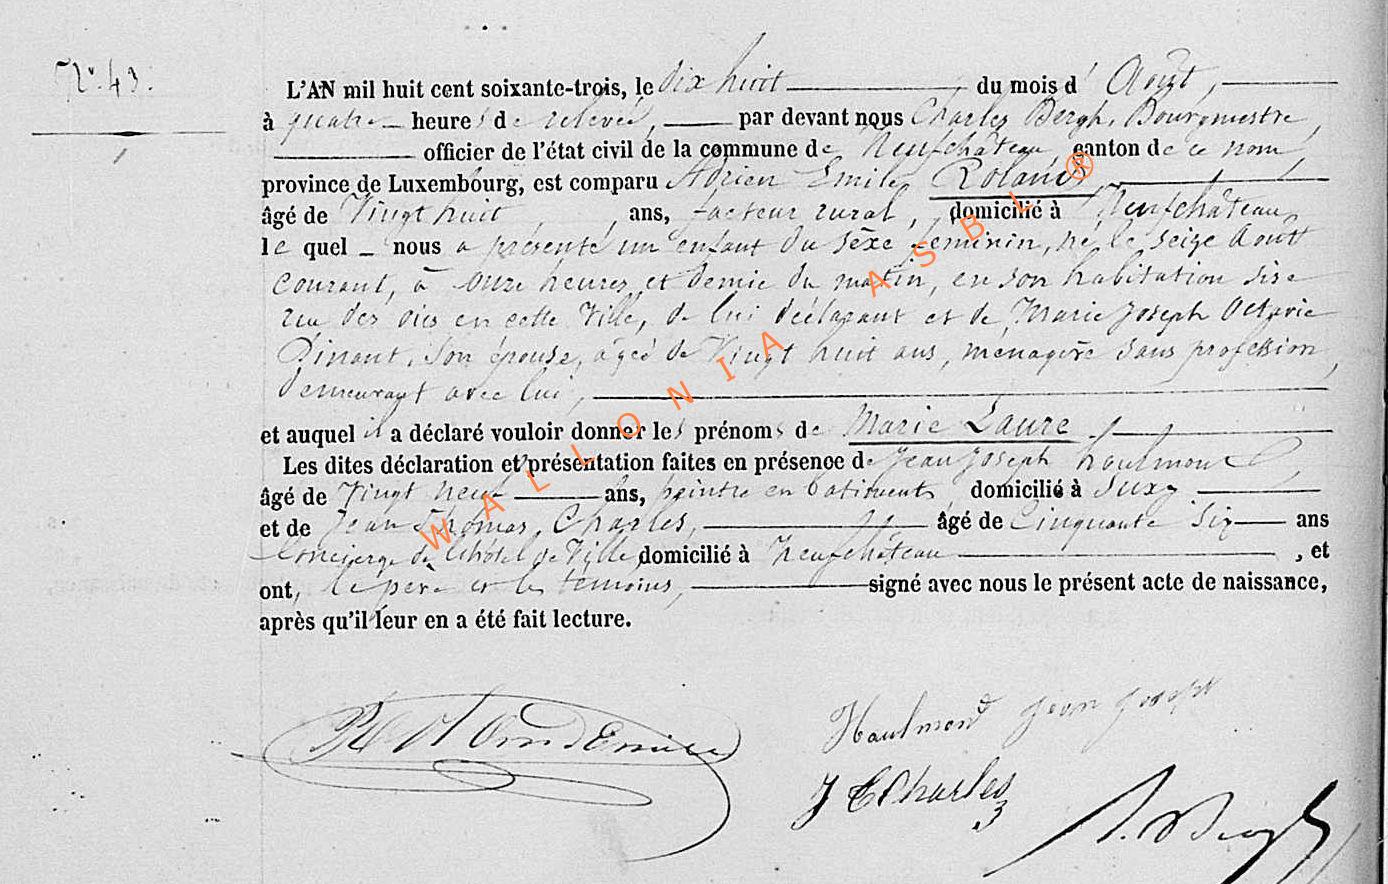 N° 43.
L'AN mil huit cent soixante-trois, le dix huit du mois d'Août,
à quatre heures de relevée, par devant nous Charles Bergh, Bourgmestre,
officier de l'état civil de la commune de Neufchâteau, canton de ce nom,
province de Luxembourg, est comparu Adrien Emile Roland,
âgé de Vingt huit ans, facteur rural, domicilié à Neufchâteau,
le quel nous a présenté un enfant du sèxe feminin, né, le seize Août
courant, à onze heures et demie du matin, en son habitation sise
rue des oies en cette Ville, de lui déclarant et de Marie Joseph Octavie
Dinant, son épouse, agée de Vingt huit ans, ménagère sans profession,
demeurant avec lui,
et auquel il a déclaré vouloir donner les prénoms de Marie Laure
Les dites déclaration et présentation faites en présence de Jean Joseph Haulmont,
âgé de Vingt neuf ans, peintre en batiments, domicilié à Suxy
et de Jean Thomas Charles, âgé de Cinquante six ans
Concierge de l'hôtel de Ville, domicilié à Neufchâteau, et
ont, le père et les témoins, signé avec nous le présent acte de naissance,
après qu'il leur en a été fait lecture.
WALLONIA ASBL ®
Haulmont Jean Joseph
J T Charles